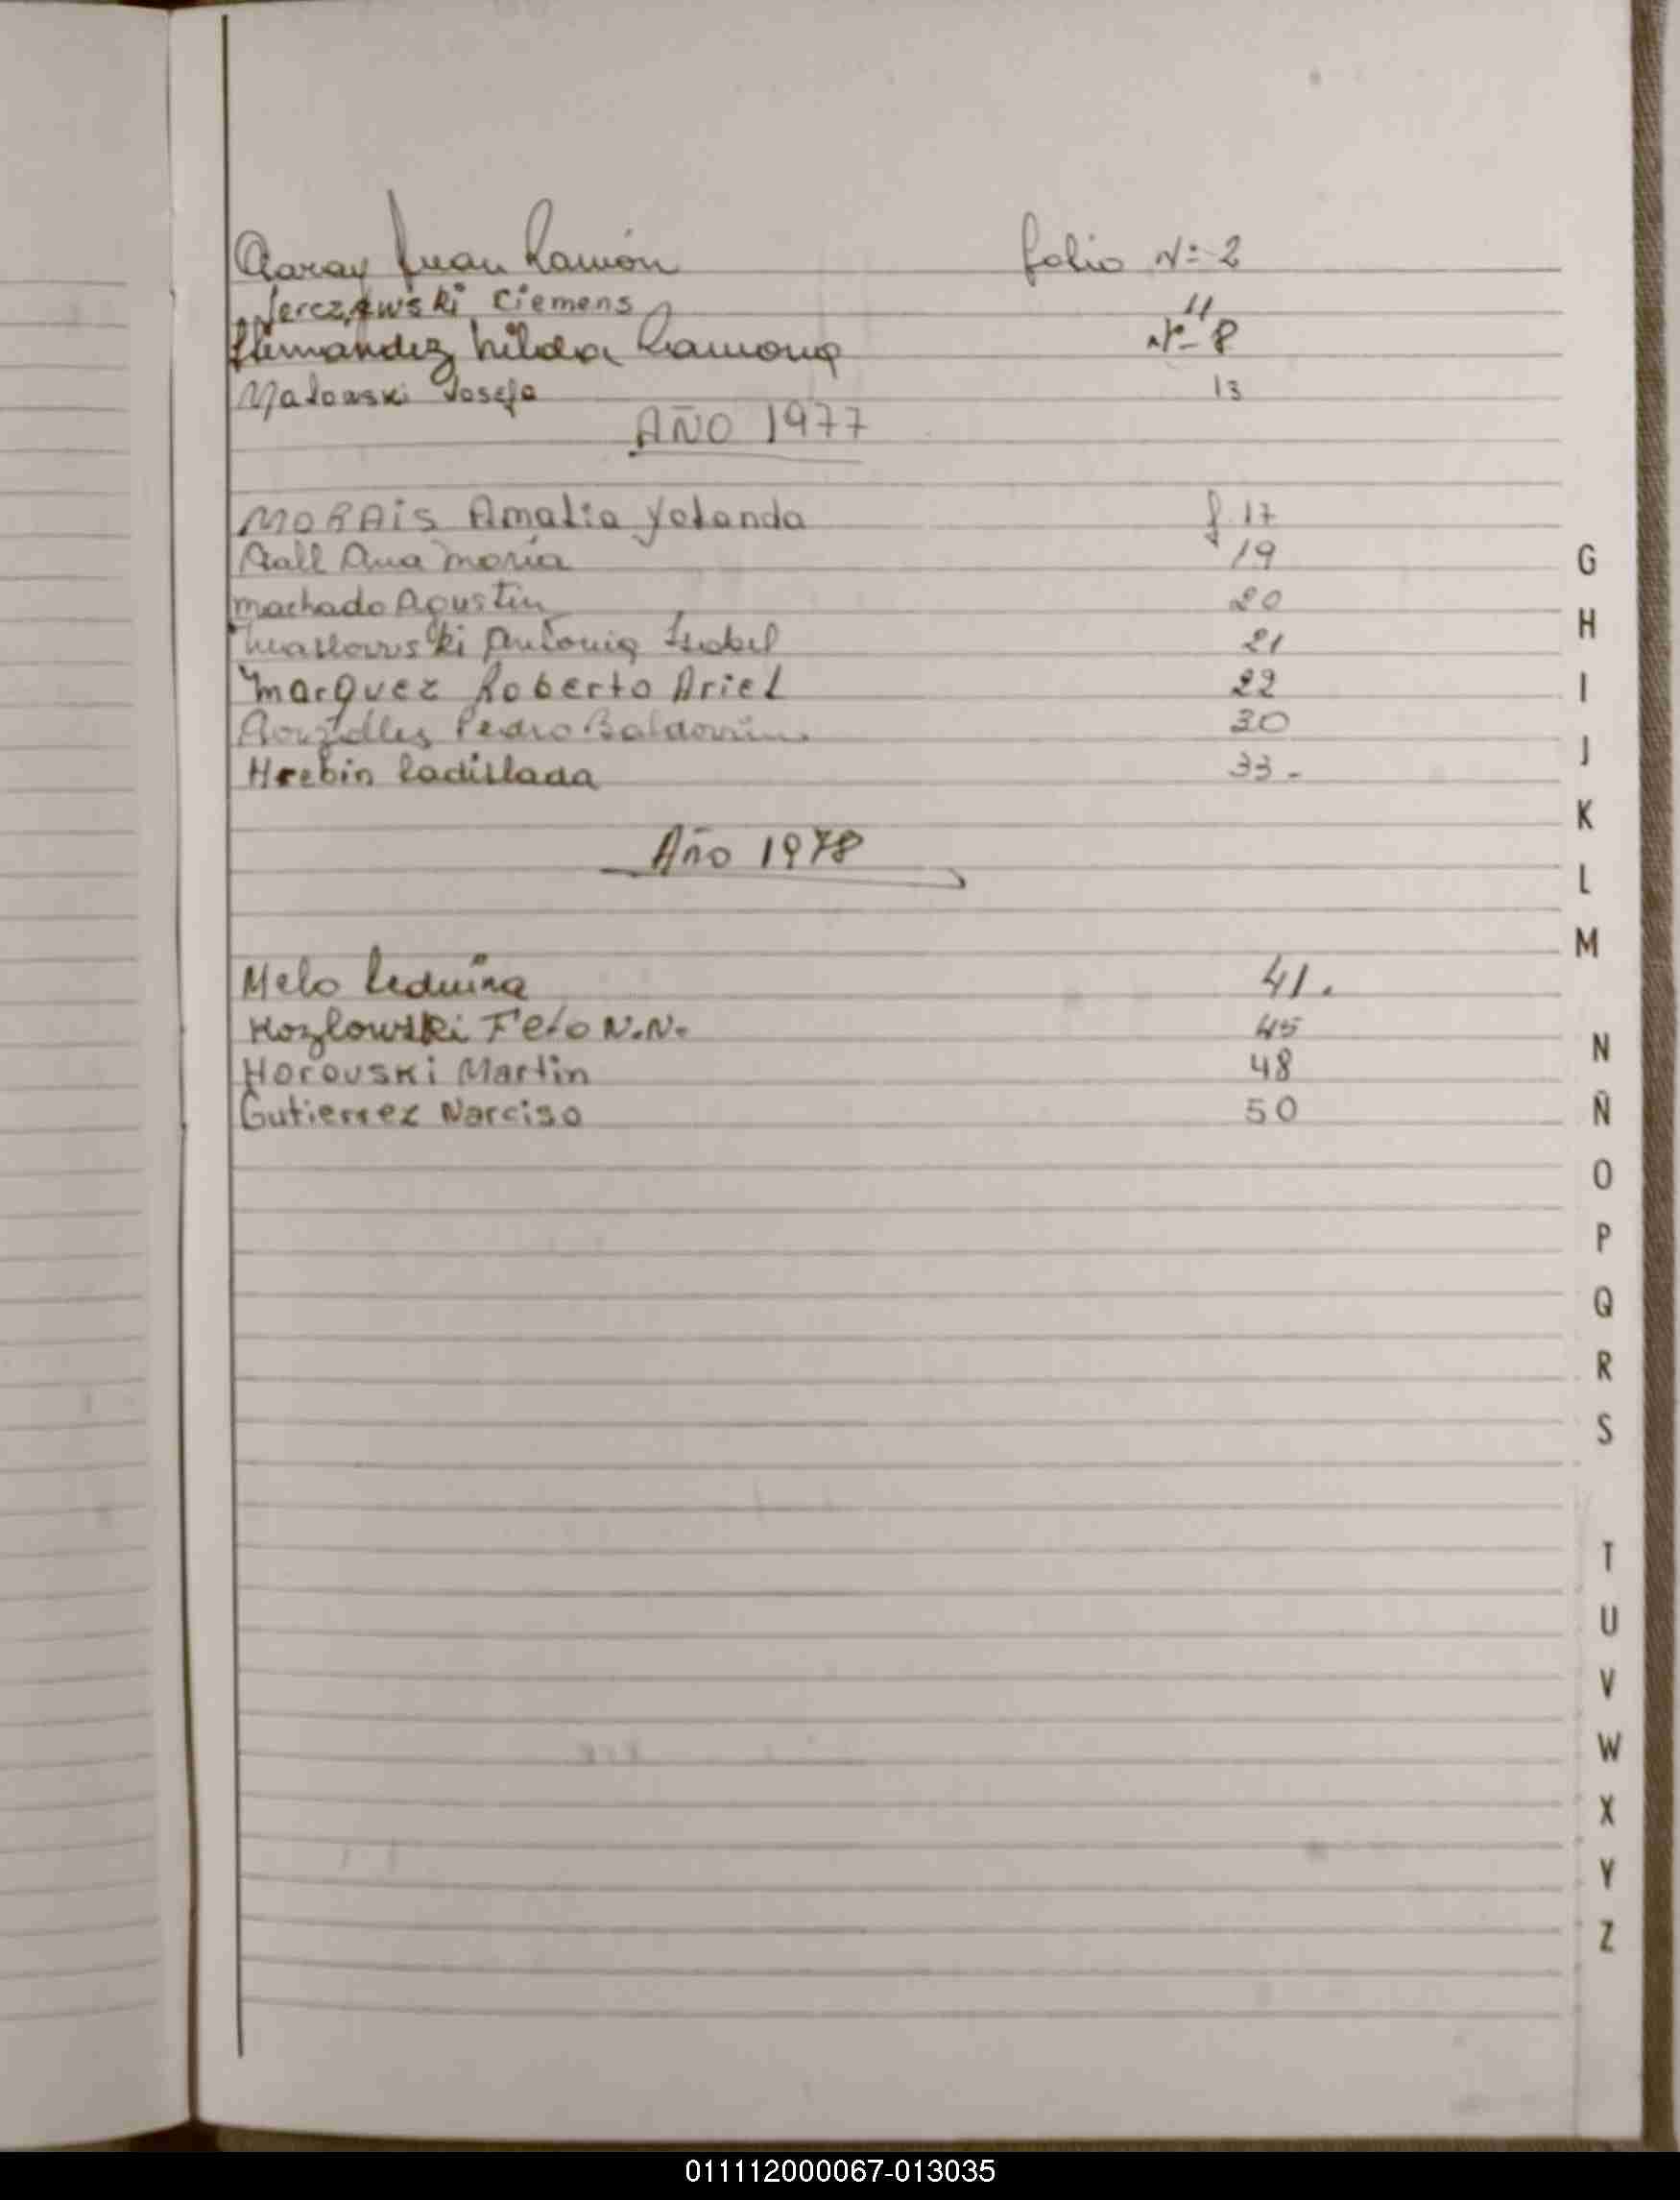 Garay Juan Ramón folio Nº 2
Jerczewski Ciemens 11
Hernandez hilda Ramona Nº 8
Malowski Josefa 13
AÑO 1977
MORAIS Amalia yolanda f. 17
Gall Ana maria 19
machado Agustin 20
Antonia Isabel 21
marquez Roberto Ariel 22
Gonzalles Pedro Baldovin. 30
Hrebin Ladillada 33-
Año 1978
Melo Leduina 41.
Kozlowski Feto N.N. 45
Horouski Martin 48
Gutierrez Narciso 50
G
H
I
J
K
L
M
N
Ñ
O
P
Q
R
S
T
U
V
W
X
Y
Z
011112000067-013035